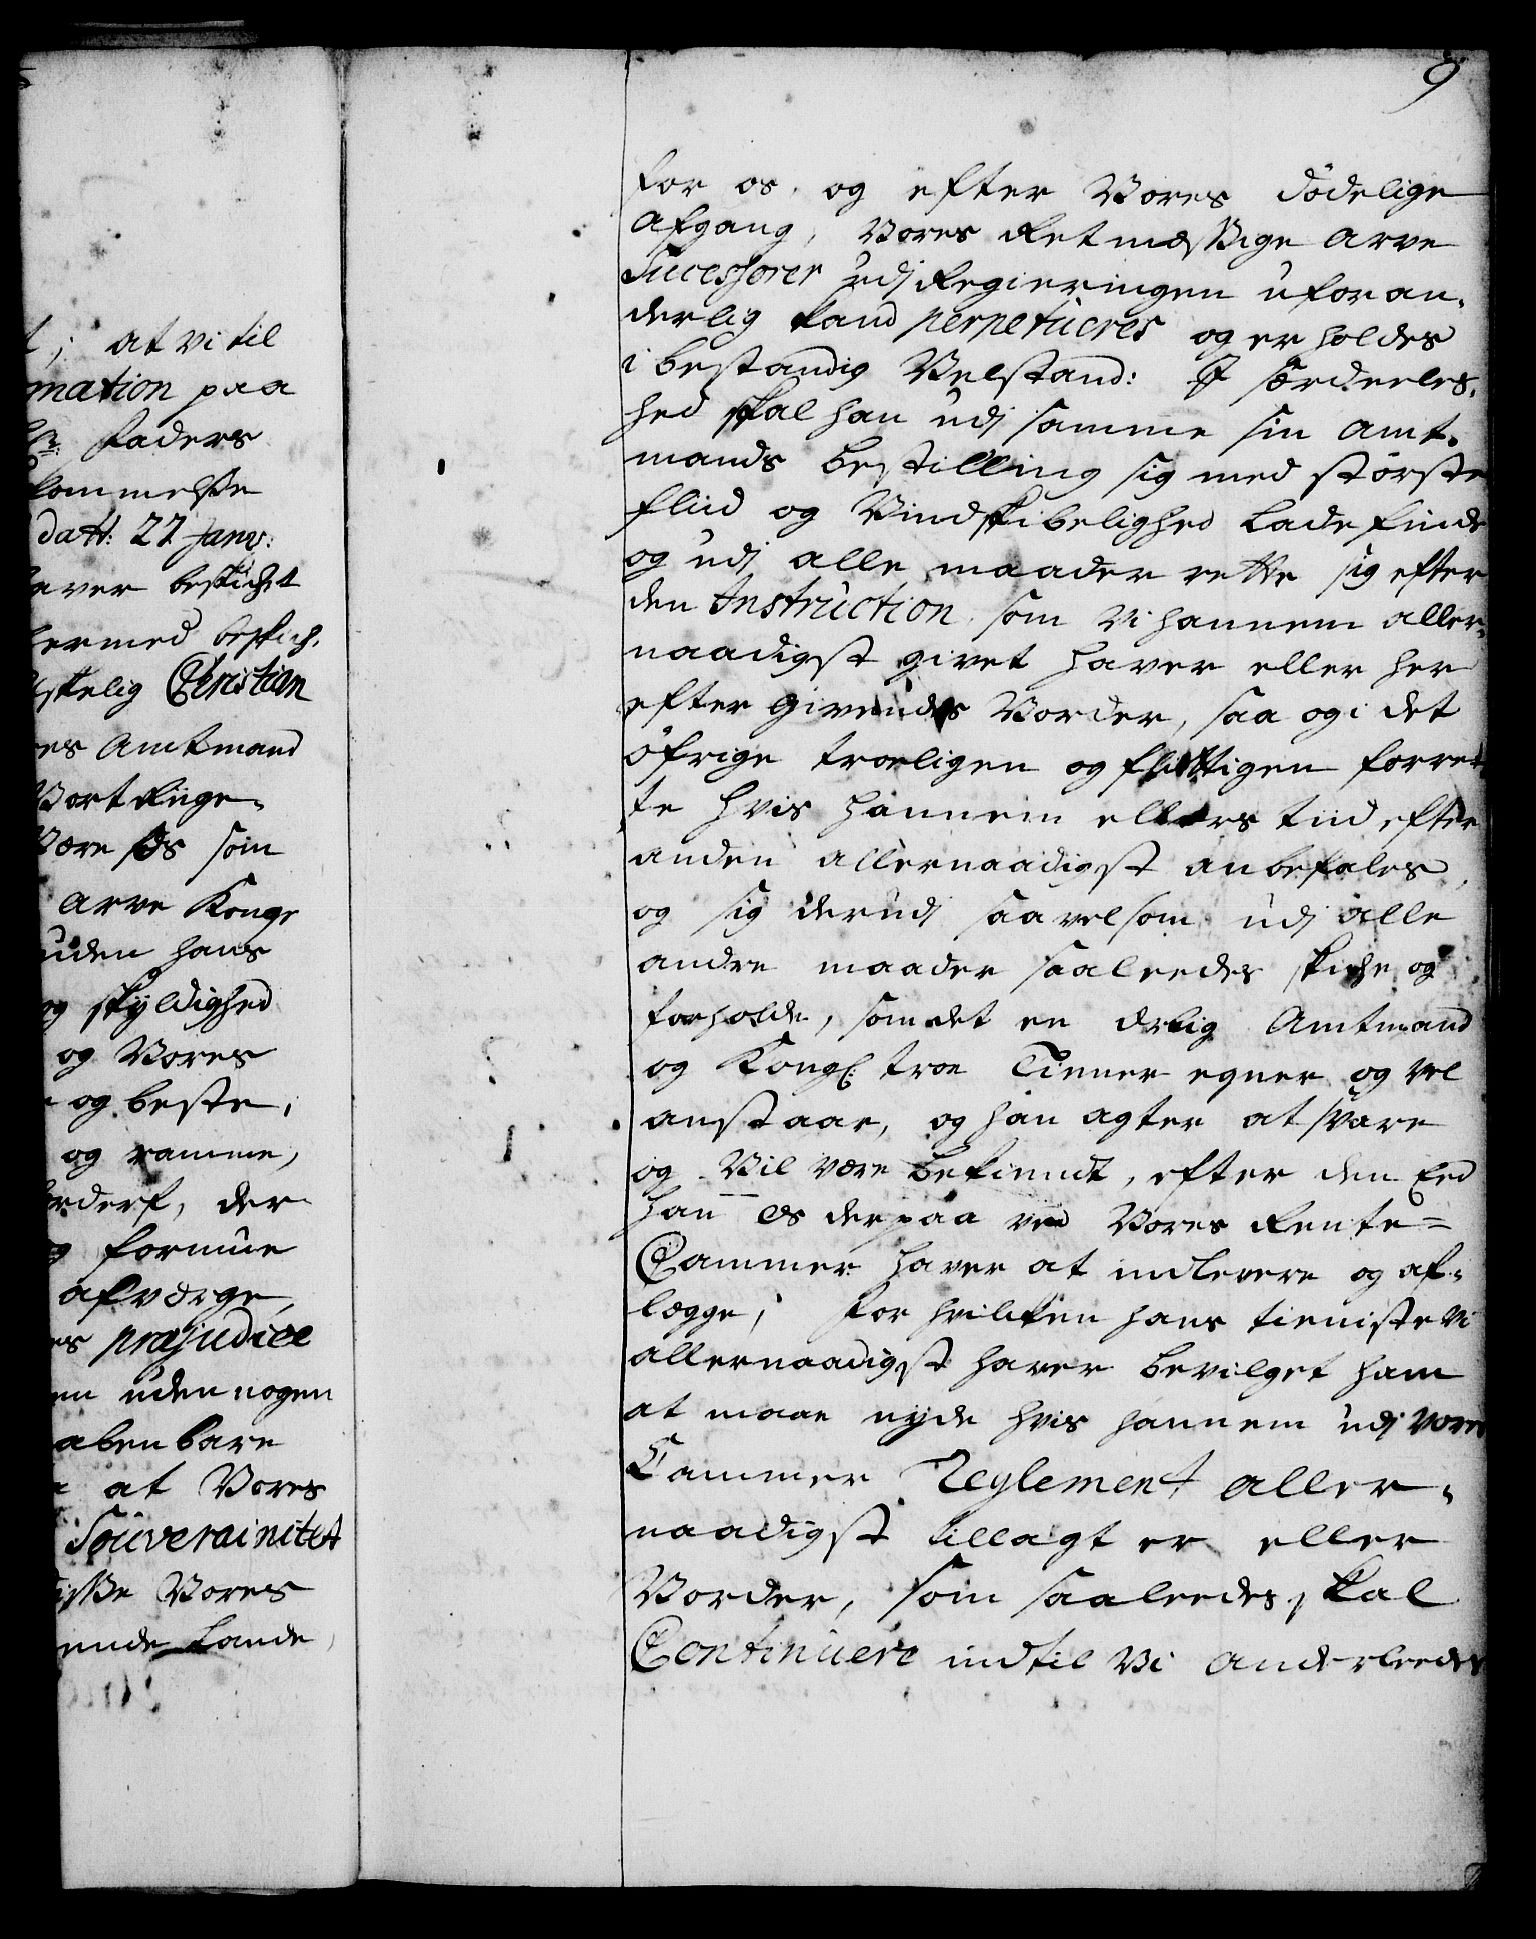 t; at vi til
mation paa
Faders
kommelse
datt: 22 Janv:
aver beskichet
hermed beskich,
skelig Christian
res Amtmand
Vort Riige„
Være Os som
arve Konge
uden hans
og skyldighed
og Vores
og beste,
og ramme,
rderf, der
og formue
afværge,
es præjudice
em uden nogen
abenbare
at Vores
Souverainitet
disse Vores
ende Lande
9
for os, og efter Vores dödelige
Afgang, Vores Retmæssige Arve
Sucessorer udj Regieringen uforan„
derlig kand perpetueres og erholdes
i bestandig Velstand: I særdeeles„
hed skal han udj samme sin Amt„
mands bestilling sig med störste
fliid og Vindskibelighed lade finde
og udj alle maader rette sig efter
den Instruction, som Vi hannem aller„
naadigst givet haver eller her
efter givendes Vorder, saa og i det
öfrige troeligen og flittigen forret
te hvis hannem ellers tiid efter
anden allernaadigst anbefales,
og sig derudj saavelsom udj alle
andre maader saaleedes skiche og
forholde, som det en ærlig Amtmand
og Kongl: troe Tienner egner og vel
anstaar, og han agter at svare
og Vil være bekiendt, efter den Eed
han Os derpaa ved Vores Rente=
Cammer haver at indlevere og af„
legge; For hvilken hans tieniste Vi
allernaadigst haver bevilget ham
at maae nyde hvis hannem udj Vores
Cammer Reglement aller„
naadigst tillagt er eller
Vorder, som saaleedes skal
Continuere indtil Vi anderleedes